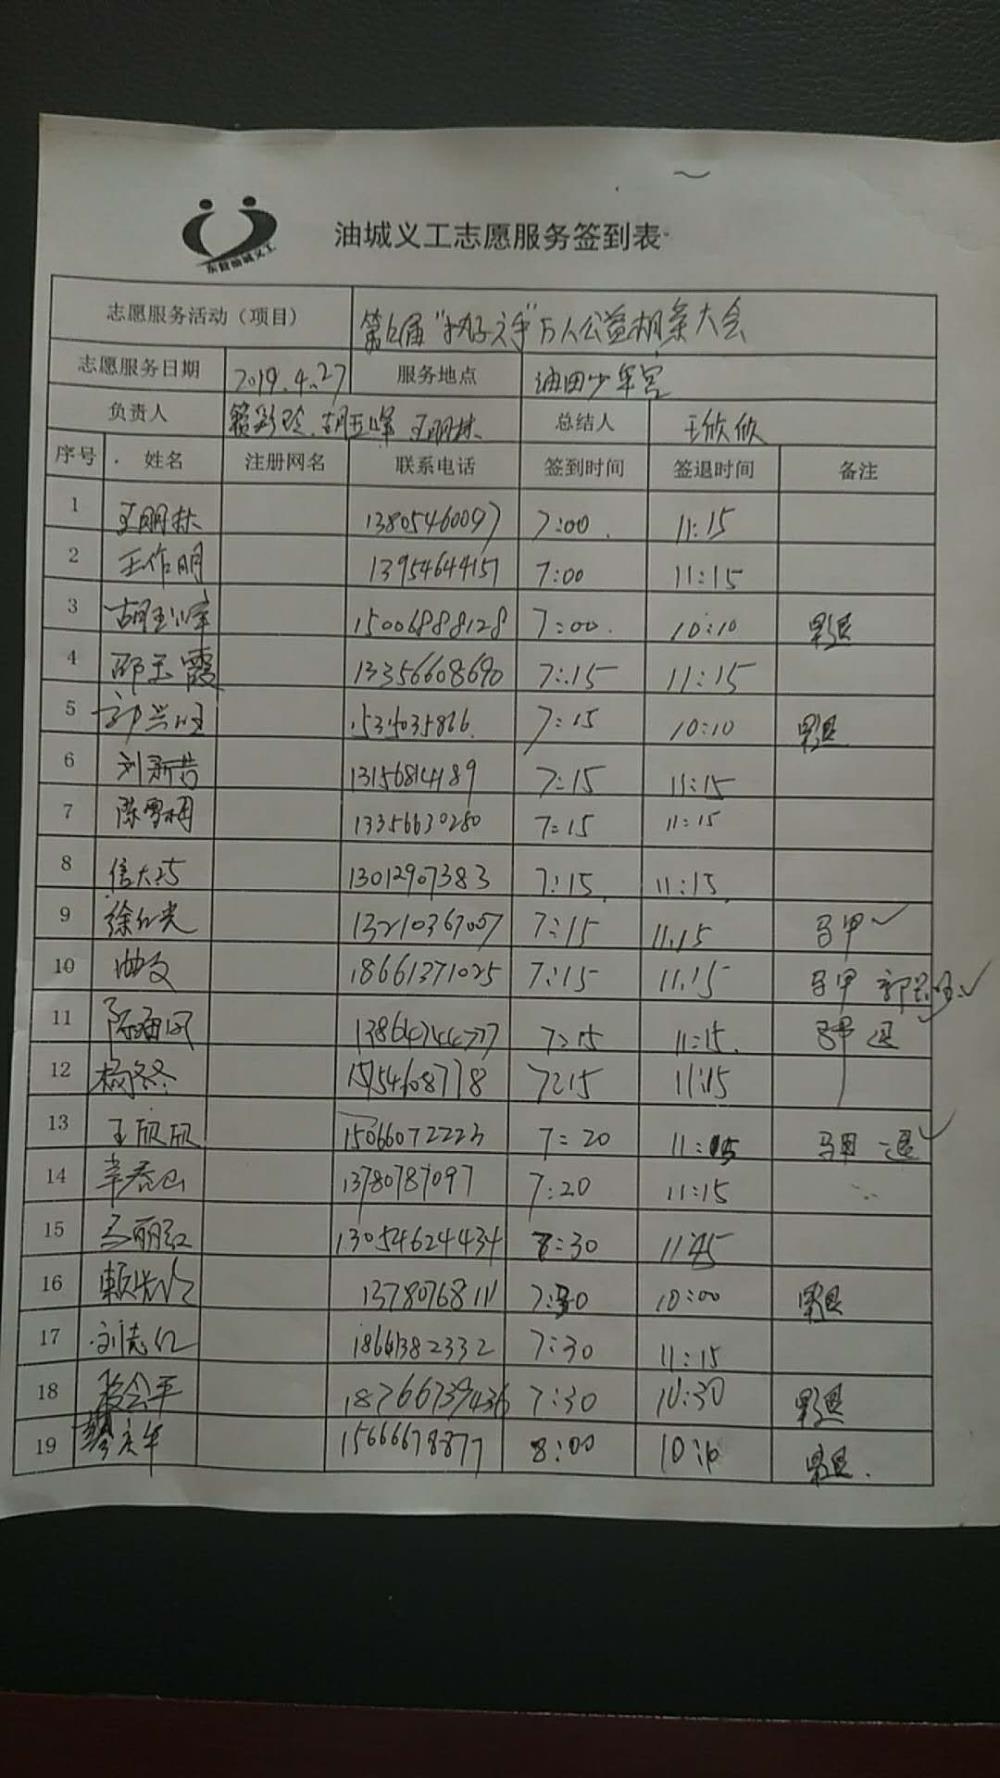 东营油城义工
油城义工志愿服务签到表
志愿服务活动（项目） 第七届"执子之手"万人公益相亲大会
志愿服务日期 2019.4.27 服务地点 油田少年宫
负责人 胡玉峰 王明林 总结人 王欣欣
序号 姓名 注册网名 联系电话 签到时间 签退时间 备注
1 王明林 13805460097 7:00 11:15
2 王作明 13954644157 7:00 11:15
3 胡玉峰 15006888128 7:00 10:10 早退
4 邵玉霞 13356608690 7:15 11:15
5 郭兴旺 7:15 10:10 早退
6 13156814189 7:15 11:15
7 陈雪梅 13356630280 7:15 11:15
8 信大巧 13012907383 7:15 11:15
9 徐红光 13210367057 7:15 11.15 马甲✓
10 曲文 18661371025 7:15 11.15 马甲 郭兴旺✓
11 13864744777 7:15 11:15 马甲 退
12 杨冬冬 7:15 11:15
13 王欣欣 15066072223 7:20 11:15 马甲 退✓
14 辛春山 13780787097 7:20 11:15
15 马丽红 13054624434 8:30
16 13780768111 10:00 早退
17 刘志红 18661382332 7:30 11:15
18 18766739436 7:30 10:30 早退
19 15666678877 8:00 早退